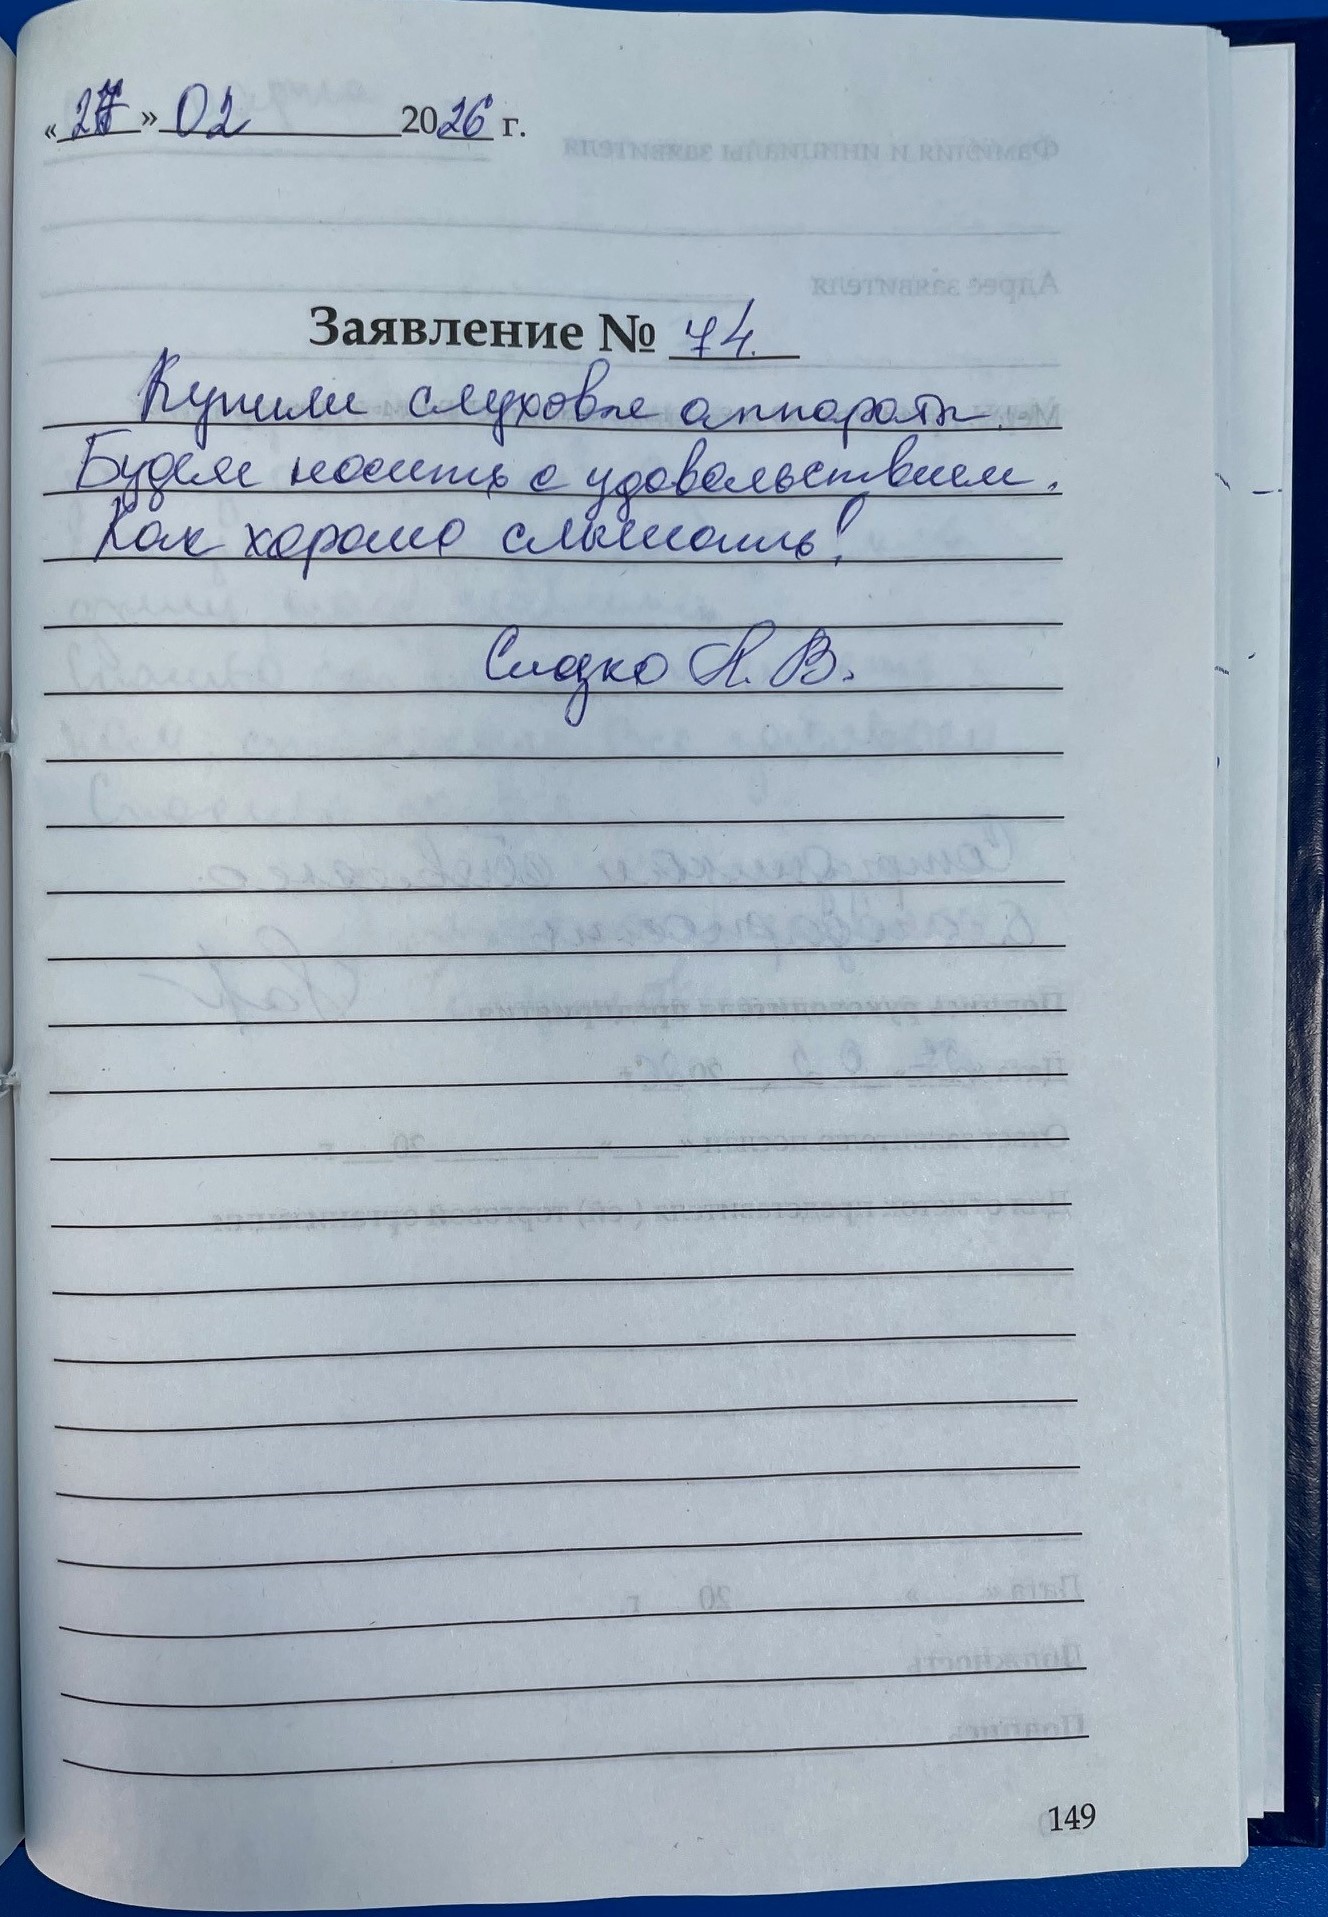 «27» 02 2026 г.
Заявление № 74.
Купили слуховые аппараты.
Будем носить с удовольствием.
Как хорошо слышать!
А. В.
149